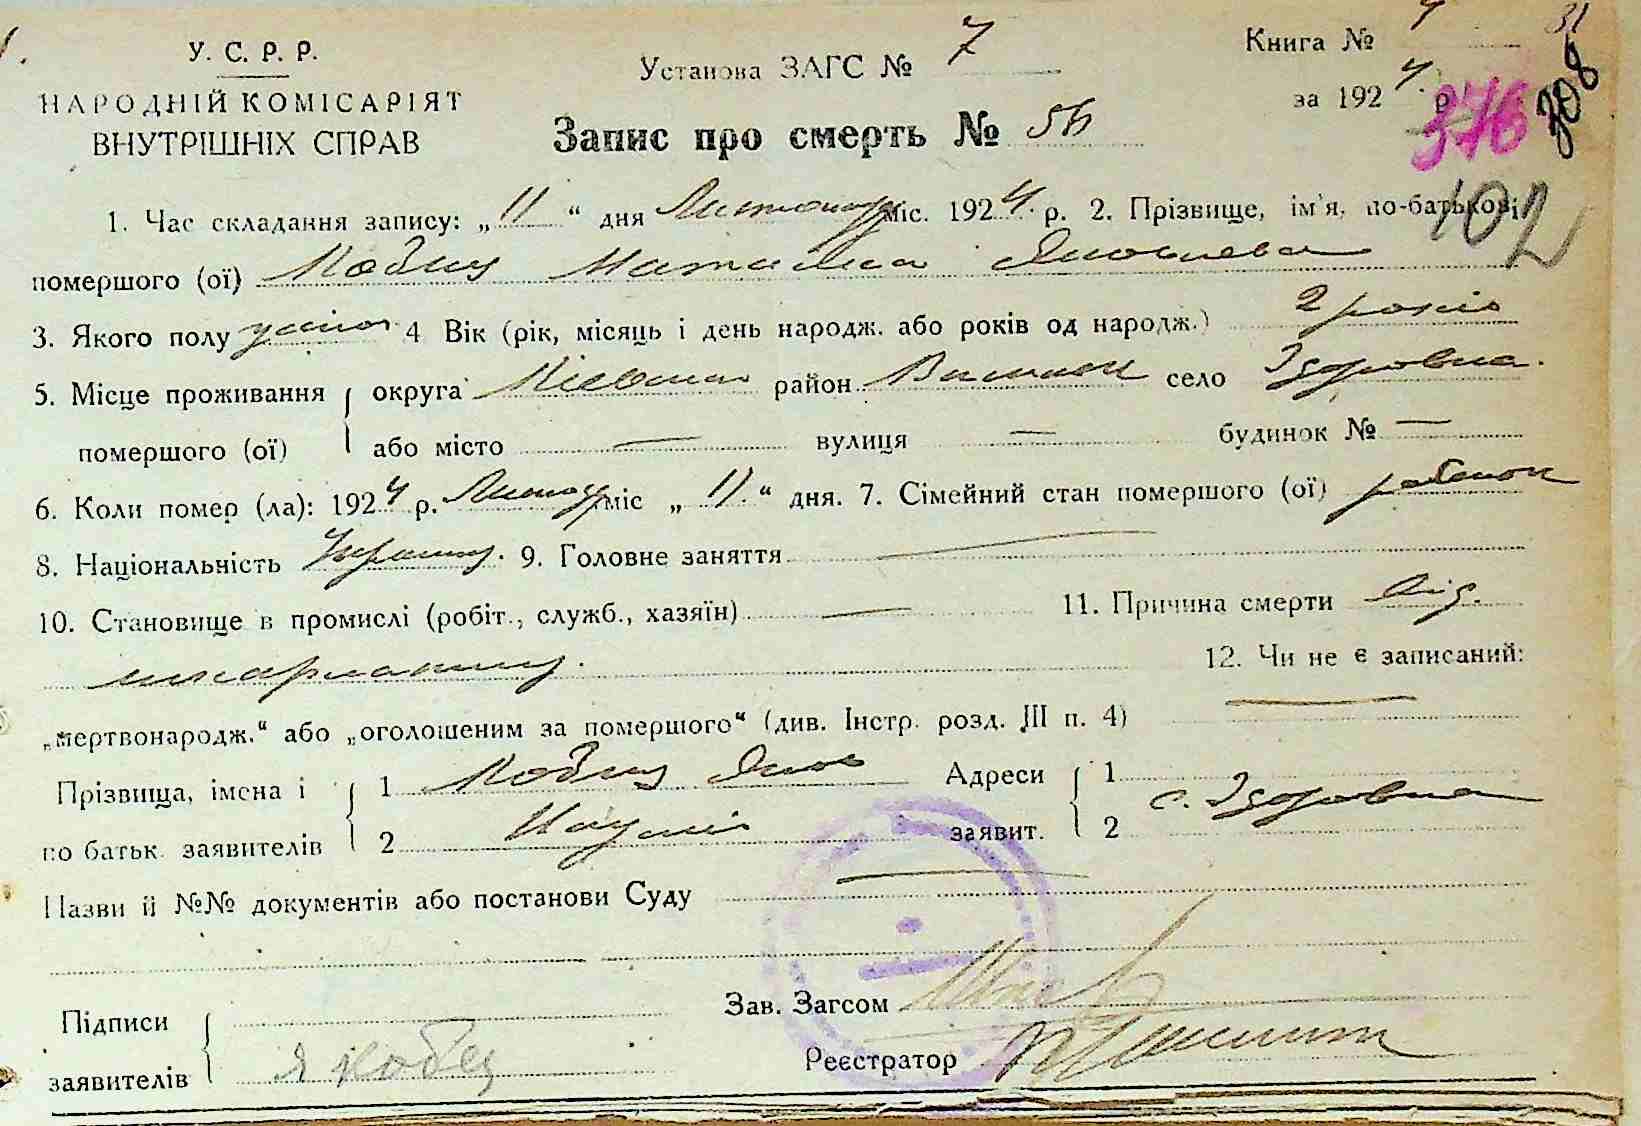 У. С. Р. Р.
НАРОДНІЙ КОМІСАРІЯТ
ВНУТРІШНІХ СПРАВ
Установа ЗАГС № 7
Запис про смерть № 56
Книга № 4 31
за 1924 р.
376
308
102
1. Час складання запису: „11“ дня Листопад міс. 1924 р. 2. Прізвище, ім'я, по-батькові
помершого (ої) Кобец Яковлева
3. Якого полу жіноч 4 Вік (рік, місяць і день народж. або років од народж.) 2 років
5. Місце проживання округа Київська район село Здоровка
помершого (ої) або місто — вулиця — будинок № —
6. Коли помер (ла): 1924 р. Листопад міс „11“ дня. 7. Сімейний стан помершого (ої) ребенок
8. Національність Україн. 9. Головне заняття —
10. Становище в промислі (робіт., служб., хазяїн) — 11. Причина смерти від
шкарлатини. 12. Чи не є записаний:
„мертвонародж.“ або „оголошеним за помершого“ (див. Інстр. розд. III п. 4) —
Прізвища, імена і 1 Кобец Яков Адреси 1
по батьк. заявителів 2 заявит. 2 с. Здоровка
Назви й №№ документів або постанови Суду —
Зав. Загсом
Підписи
Реєстратор
заявителів Я Кобец